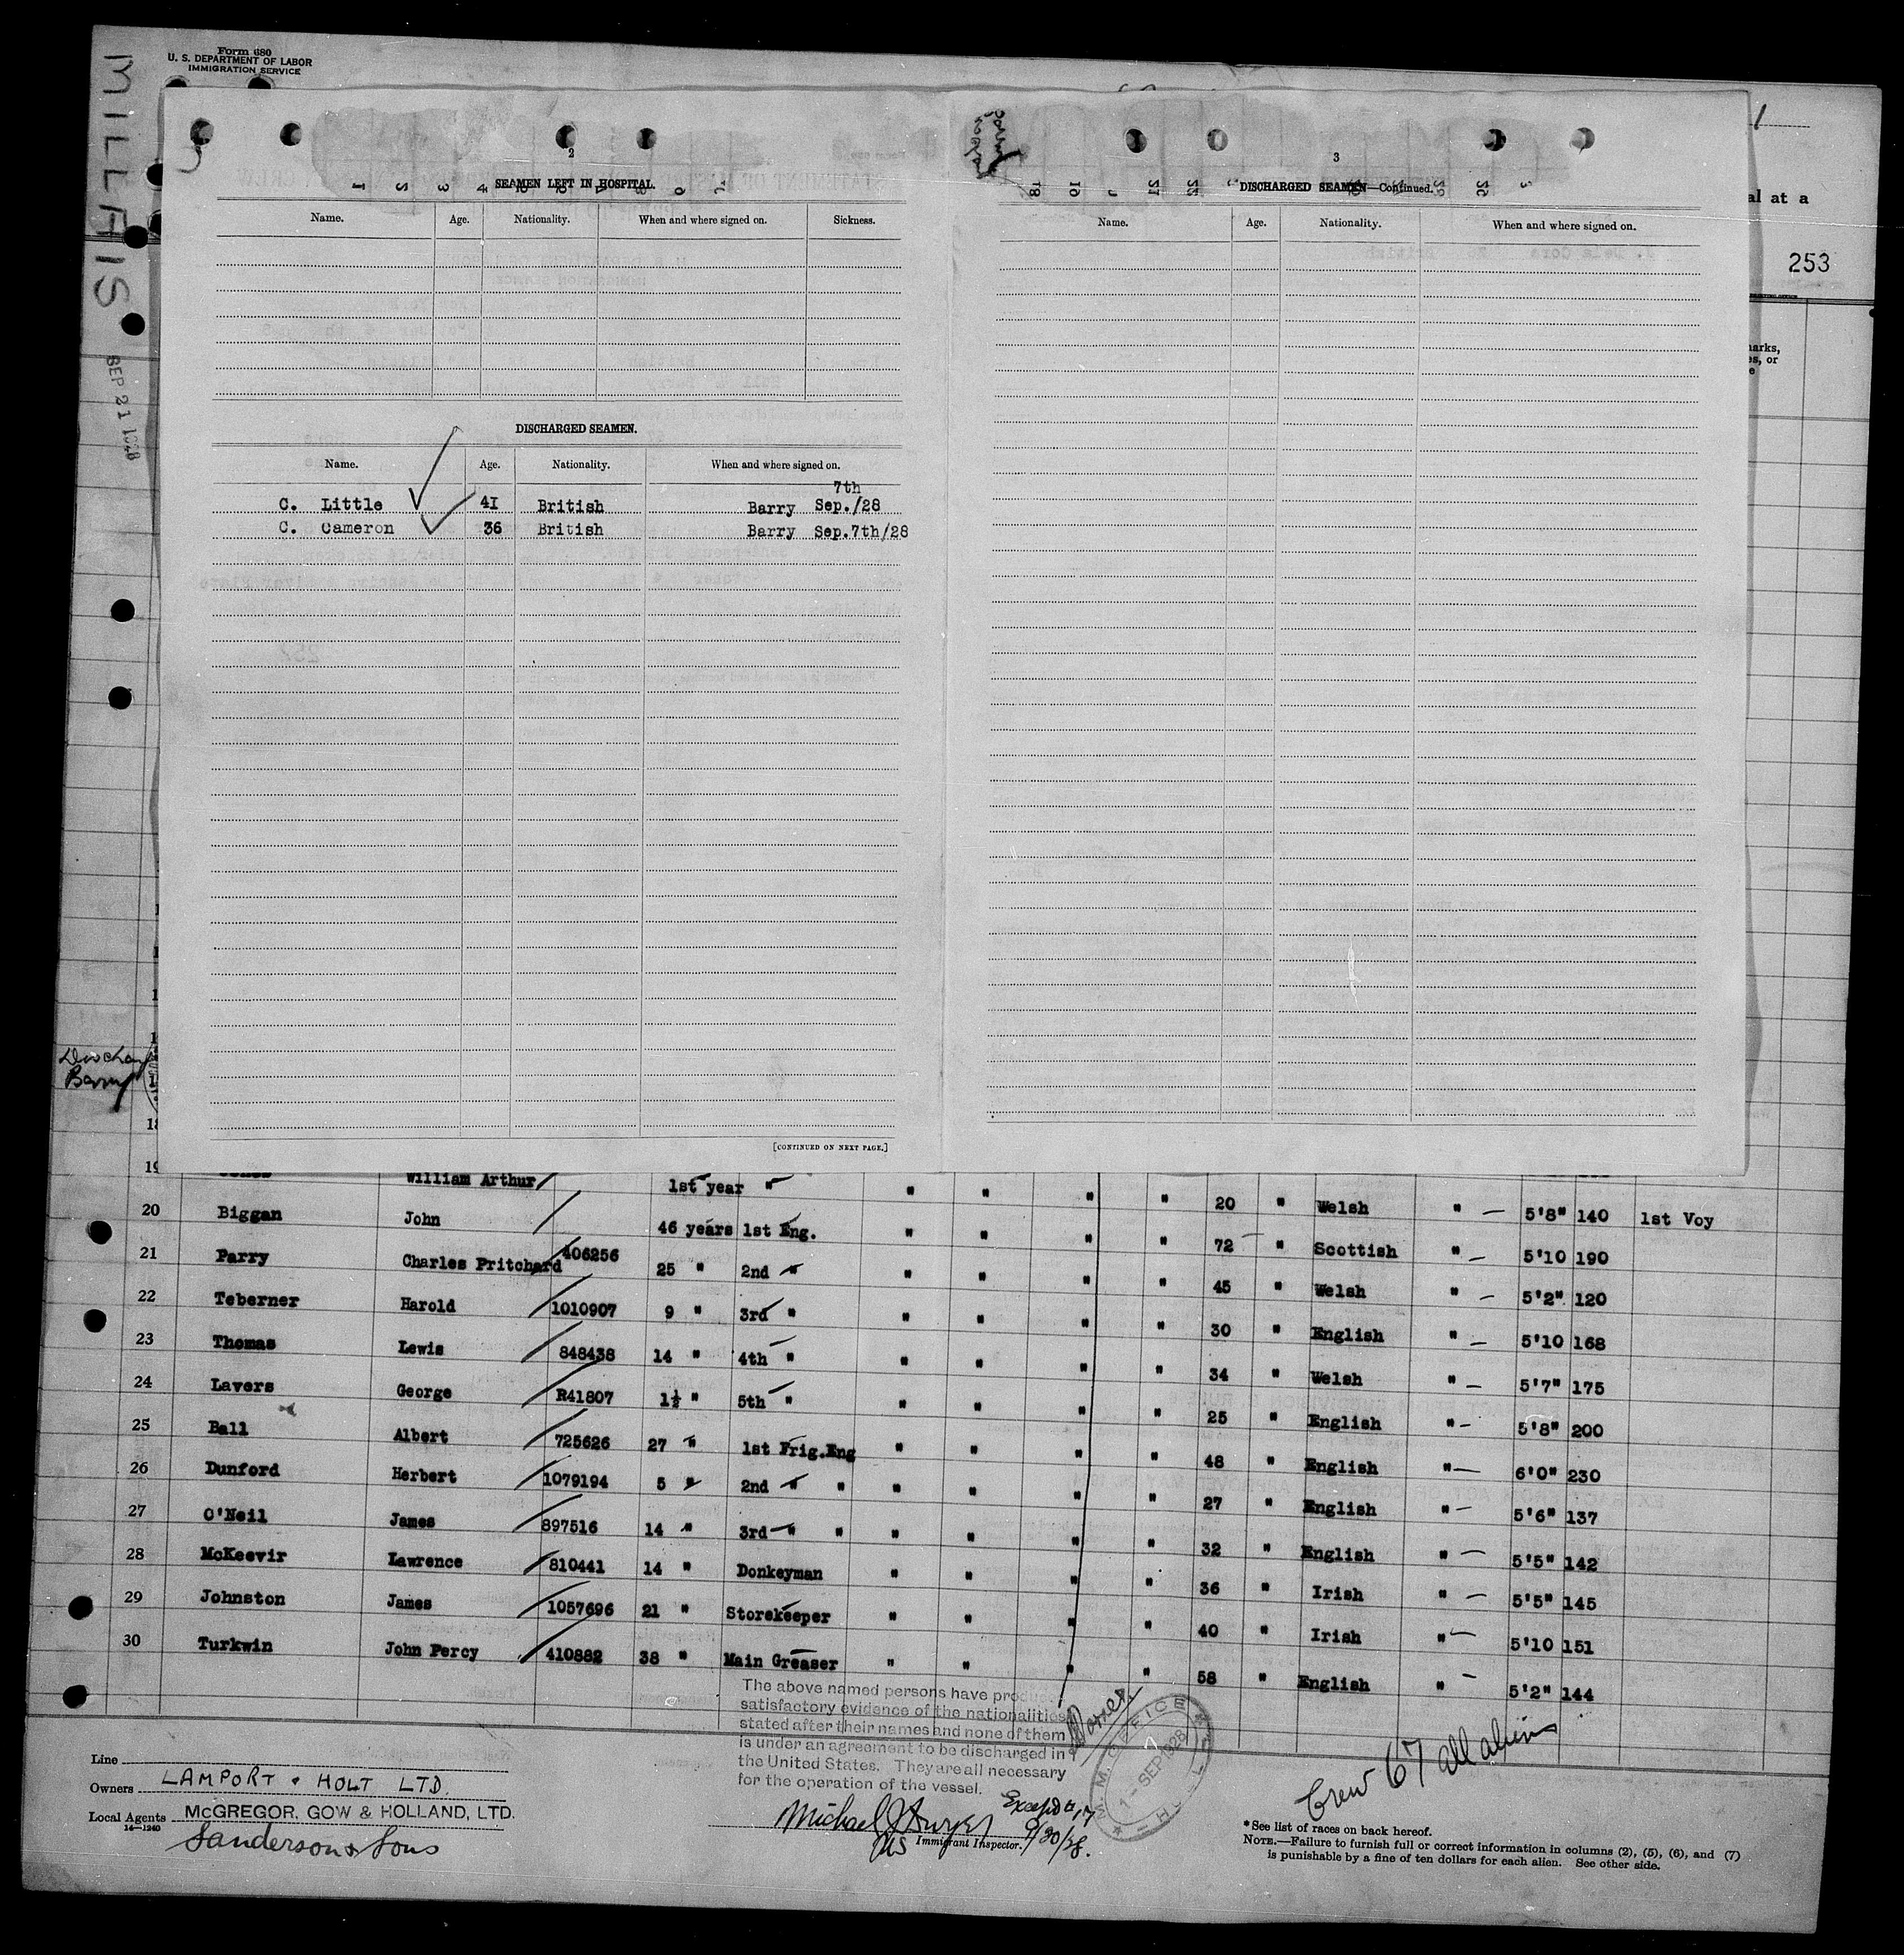 MILLAIS
SEP 21 1928
Form 680
U. S. DEPARTMENT OF LABOR
IMMIGRATION SERVICE
al at a
253
2
SEAMEN LEFT IN HOSPITAL.
Name. Age. Nationality. When and where signed on. Sickness.
DISCHARGED SEAMEN.
Name. Age. Nationality. When and where signed on.
7th
C. Little 41 British Barry Sep./28
C. Cameron 36 British Barry Sep.7th/28
[CONTINUED ON NEXT PAGE.]
3
DISCHARGED SEAMEN—Continued.
Name. Age. Nationality. When and where signed on.
Barry
18
19 William Arthur 1st year " " " " " 20 " Welsh " 5'8" 140 1st Voy
20 Biggan John 46 years 1st Eng. " " " " 72 " Scottish " 5'10 190
21 Parry Charles Pritchard 406256 25 " 2nd " " " " " 45 " Welsh " 5'2" 120
22 Teberner Harold 1010907 9 " 3rd " " " " " 30 " English " 5'10 168
23 Thomas Lewis 848438 14 " 4th " " " " " 34 " Welsh " 5'7" 175
24 Lavers George R41807 1½ " 5th " " " " " 25 " English " 5'8" 200
25 Ball Albert 725626 27 " 1st Frig.Eng " " " " 48 " English " 6'0" 230
26 Dunford Herbert 1079194 5 " 2nd " " " " " " 27 " English " 5'6" 137
27 O'Neil James 897516 14 " 3rd " " " " " " 32 " English " 5'5" 142
28 McKeevir Lawrence 810441 14 " Donkeyman " " " " 36 " Irish " 5'5" 145
29 Johnston James 1057696 21 " Storekeeper " " " " 40 " Irish " 5'10 151
30 Turkwin John Percy 410882 38 " Main Greaser " " " " 58 " English " 5'2" 144
The above named persons have produced
satisfactory evidence of the nationalities
stated after their names and none of them
is under an agreement to be discharged in
the United States. They are all necessary
for the operation of the vessel.
M. M. OFFICE
SEP 1928
HULL
Crew 67 all aliens
Line
Owners LAMPORT & HOLT LTD.
Local Agents McGREGOR, GOW & HOLLAND, LTD.
14—1240
Sanderson & Sons
Michael J Dwyer
Immigrant Inspector. 9/20/28.
*See list of races on back hereof.
NOTE.—Failure to furnish full or correct information in columns (2), (5), (6), and (7)
is punishable by a fine of ten dollars for each alien. See other side.